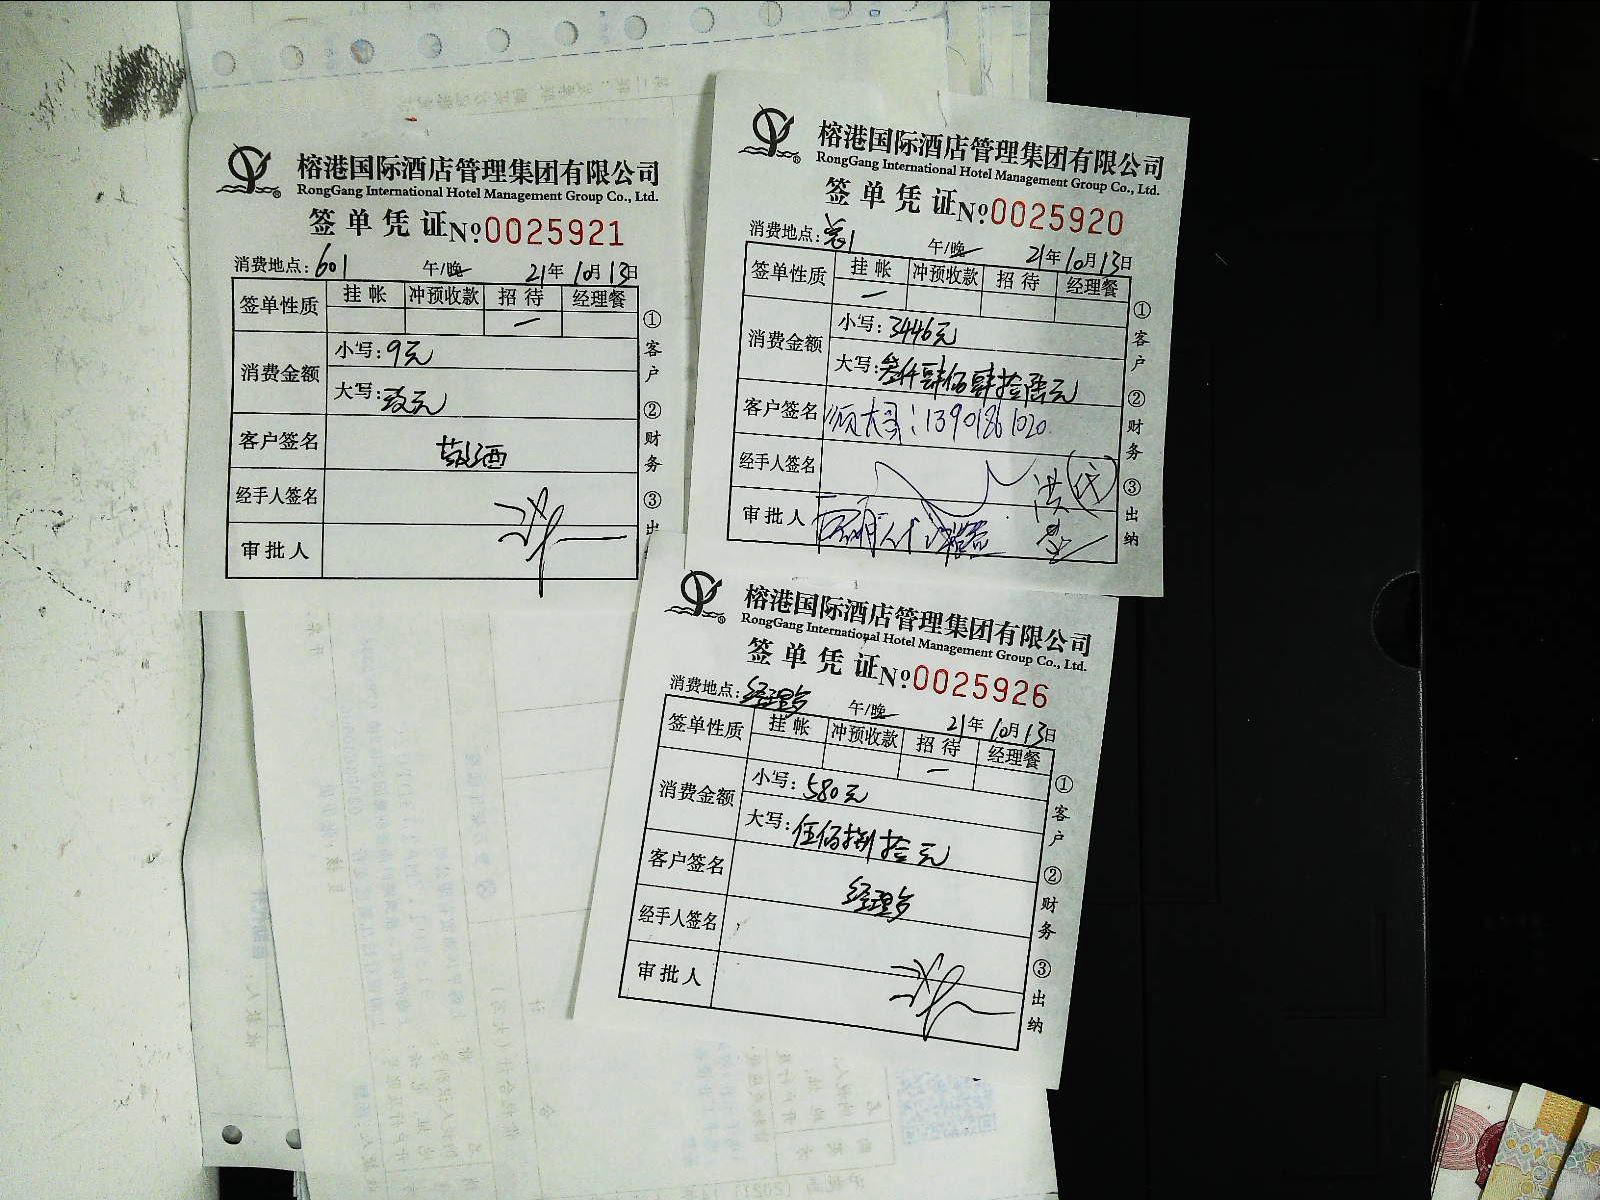 榕港国际酒店管理集团有限公司
RongGang International Hotel Management Group Co., Ltd.
签单凭证 №0025921
消费地点:601 午/晚 21年10月13日
签单性质 挂帐 冲预收款 招待 经理餐
一
消费金额 小写:9元
大写:玖元
客户签名
经手人签名
审批人
①客户 ②财务 ③出
榕港国际酒店管理集团有限公司
RongGang International Hotel Management Group Co., Ltd.
签单凭证 №0025920
消费地点: 午/晚 21年10月13日
签单性质 挂帐 冲预收款 招待 经理餐
一
消费金额 小写:3446元
大写:叁仟肆佰肆拾陆元
客户签名 :13901861020
经手人签名 洪(代)
审批人
①客户 ②财务 ③出纳
榕港国际酒店管理集团有限公司
RongGang International Hotel Management Group Co., Ltd.
签单凭证 №0025926
消费地点:经理 午/晚 21年10月13日
签单性质 挂帐 冲预收款 招待 经理餐
一
消费金额 小写:580元
大写:伍佰捌拾元
客户签名 经理
经手人签名
审批人
①客户 ②财务 ③出纳